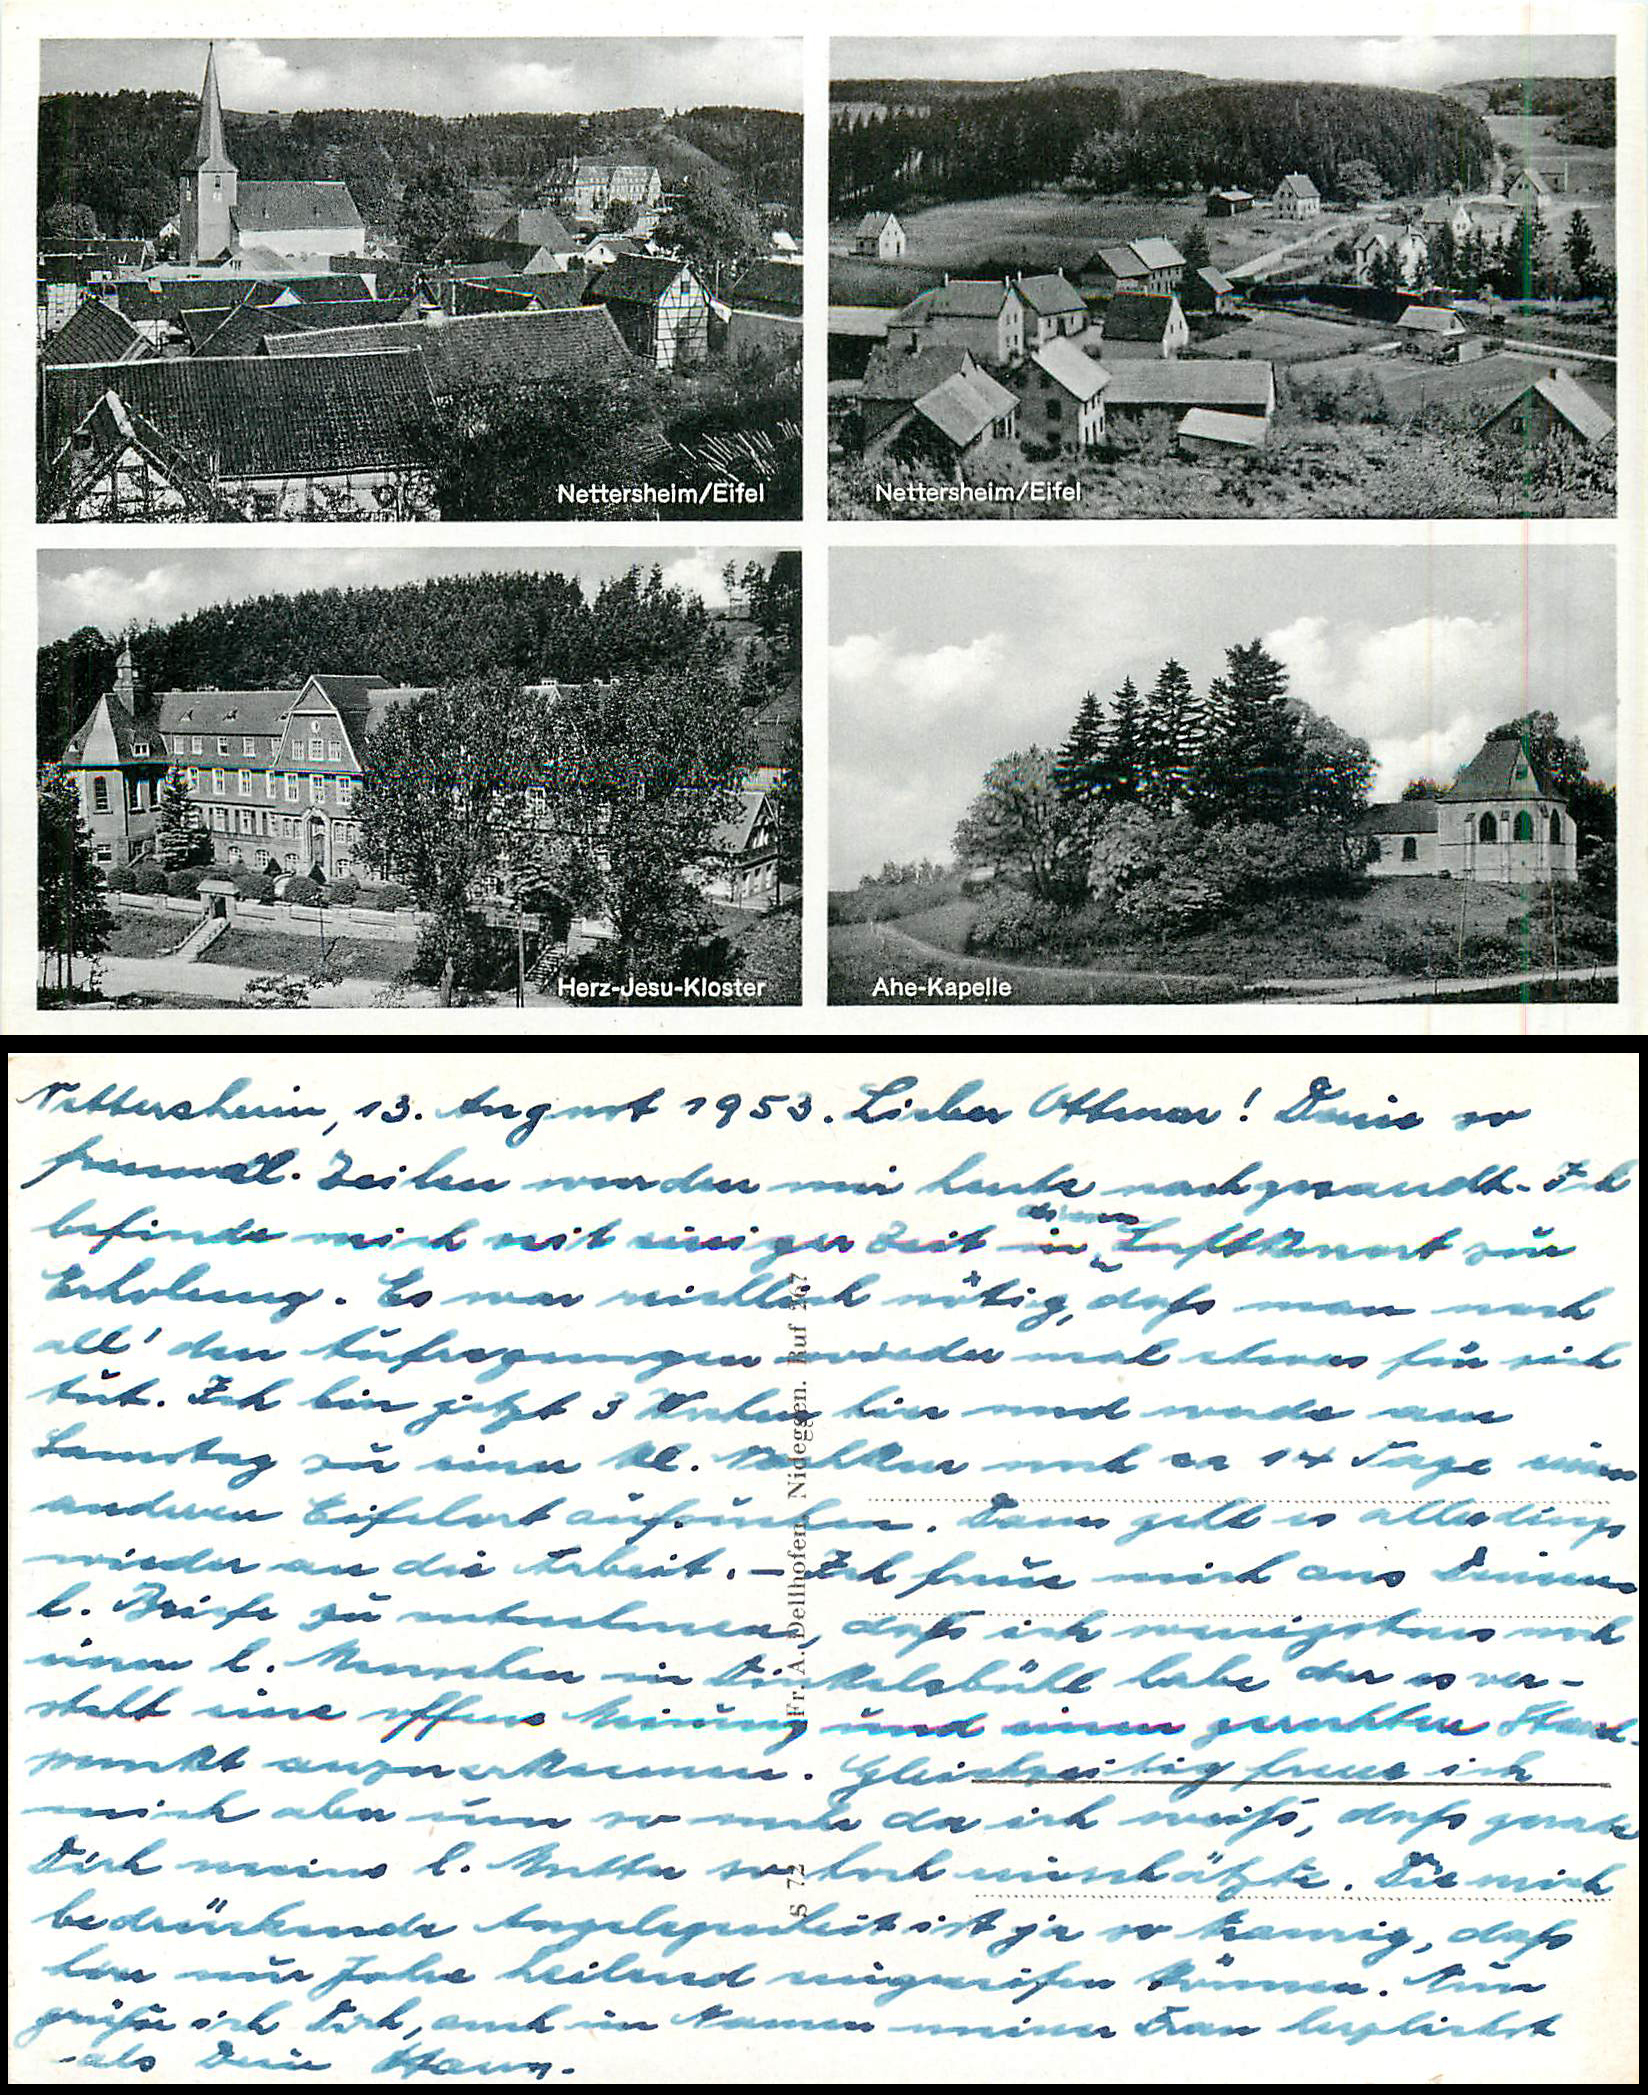 Nettersheim/Eifel
Nettersheim/Eifel
Herz-Jesu-Kloster
Ahe-Kapelle
Nettersheim, 13. August 1953. Lieber Ottmar! Deine so
freundl. Zeilen wurden mir heute nachgesandt. Ich
befinde mich seit einiger Zeit in diesem Luftkurort zur
Erholung. Es war wirklich nötig, daß man nach
all' den Aufregungen wieder mal etwas für sich
tut. Ich bin jetzt 3 Wochen hier und werde am
Samstag zu einer kl. Nachkur noch ca 14 Tage einen
anderen Eifelort aufsuchen. Dann geht es allerdings
wieder an die Arbeit. – Ich freue mich aus Deinem
l. Briefe zu entnehmen, daß ich wenigstens noch
einen l. Menschen in Dinkelsbühl habe der es ver-
steht eine offene Meinung und einen gerechten Stand-
punkt anzuerkennen. Gleichzeitig freue ich
mich aber um so mehr da ich weiß, daß gerade
Dich meine l. Mutter so hoch einschätzte. Die mich
bedrückende Angelegenheit ist ja so traurig, daß
hier nur Jahre heilend eingreifen können. Nun
grüße ich Dich, auch im Namen meiner Frau herzlichst
als Dein
Fr. A. Dellhofen, Nideggen. Ruf 267
S 72